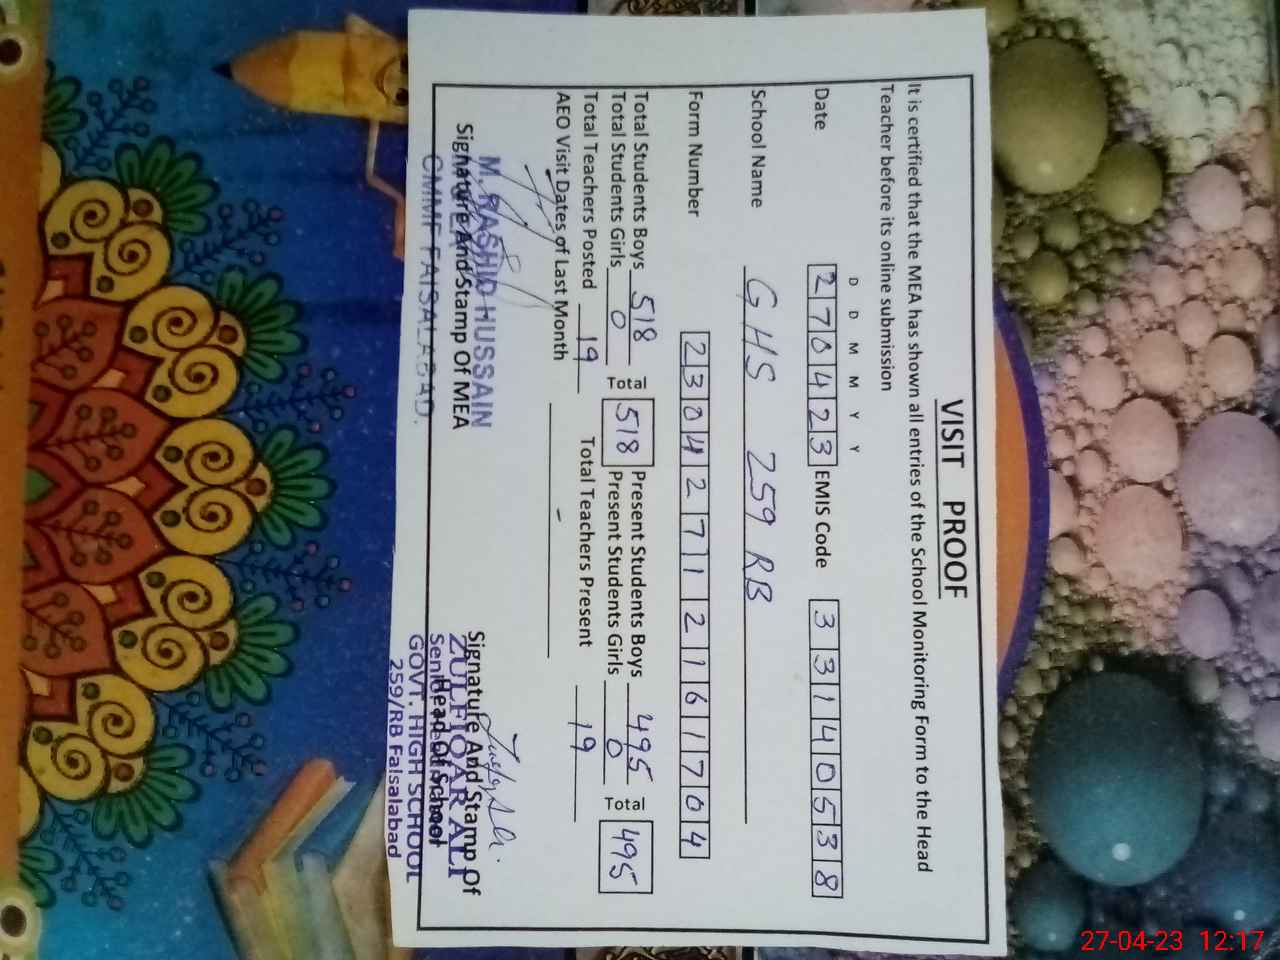 VISIT PROOF
It is certified that the MEA has shown all entries of the School Monitoring Form to the Head
Teacher before its online submission
D D M M Y Y
Date 270423 EMIS Code 33140538
School Name GHS 259 RB
Form Number 230427112161704
Total Students Boys 518 Total 518 Present Students Boys 495 Total 495
Total Students Girls 0 Present Students Girls 0
Total Teachers Posted 19 Total Teachers Present 19
AEO Visit Dates of Last Month -
M. RASHID HUSSAIN
Signature And Stamp Of MEA
CMMF FAISALABAD.
Signature And Stamp Of
ZULFIQAR ALI
Head Of School
GOVT. HIGH SCHOOL
259/RB Faisalabad
27-04-23 12:17